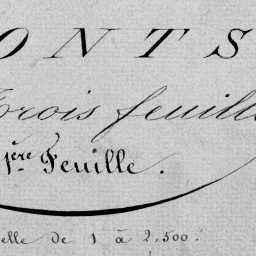 ONTS
Trois feuille
1ère Feuille.
elle de 1 à 2,500.